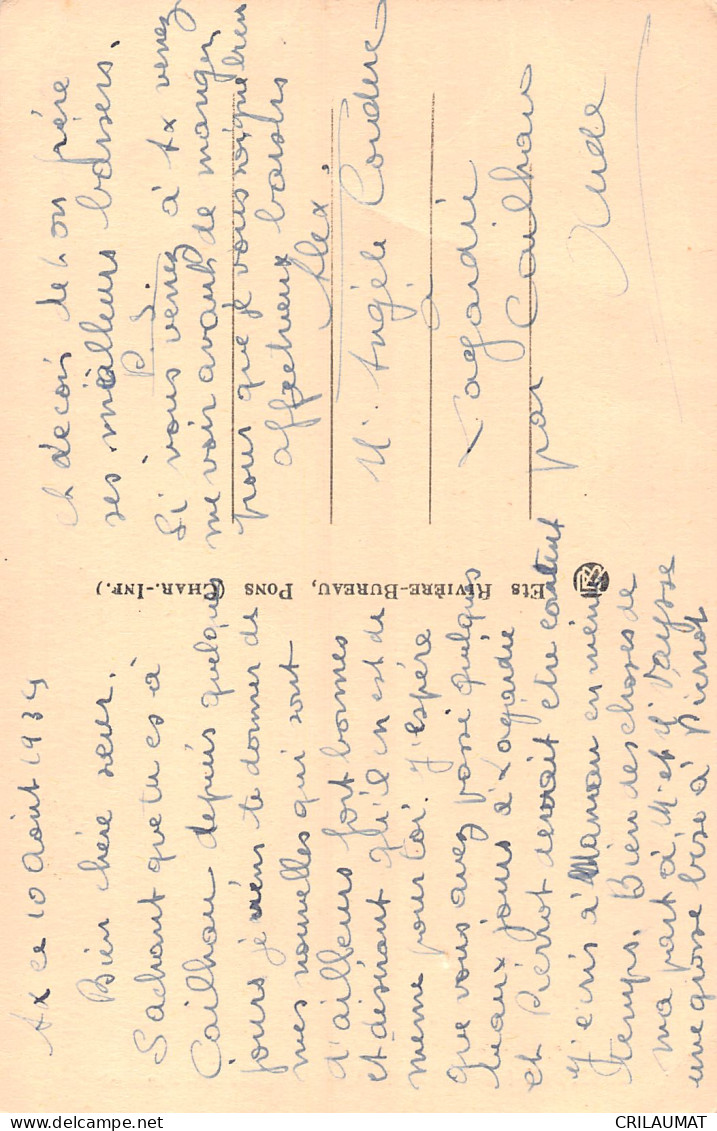 Ax ce 10 Août 1934
Bien chère sœur.
Sachant que tu es à
Cailhau depuis quelques
jours je viens te donner de
mes nouvelles qui sont
d'ailleurs fort bonnes
et désirant qu'il en est de
meme pour toi. J'espére
que vous avez passé quelques
beaux jours à Lagardie
et Pierrot devait etre content
J'écris à Maman en même
temps. Bien des choses de
ma part à M. et Mme Vaysse
une grosse bise à Pierrot
et deçois de ton frére
ses meilleurs baisers.
P.S.
Si vous venez à Ax venez
me voir avant de manger
pour que je vous
affectueux baisers
Alex.
Ets RIVIÈRE-BUREAU, PONS (CHAR.-INF.)
M. Angèle Couderc
Lagardie
par Cailhau
Aude
CRILAUMAT